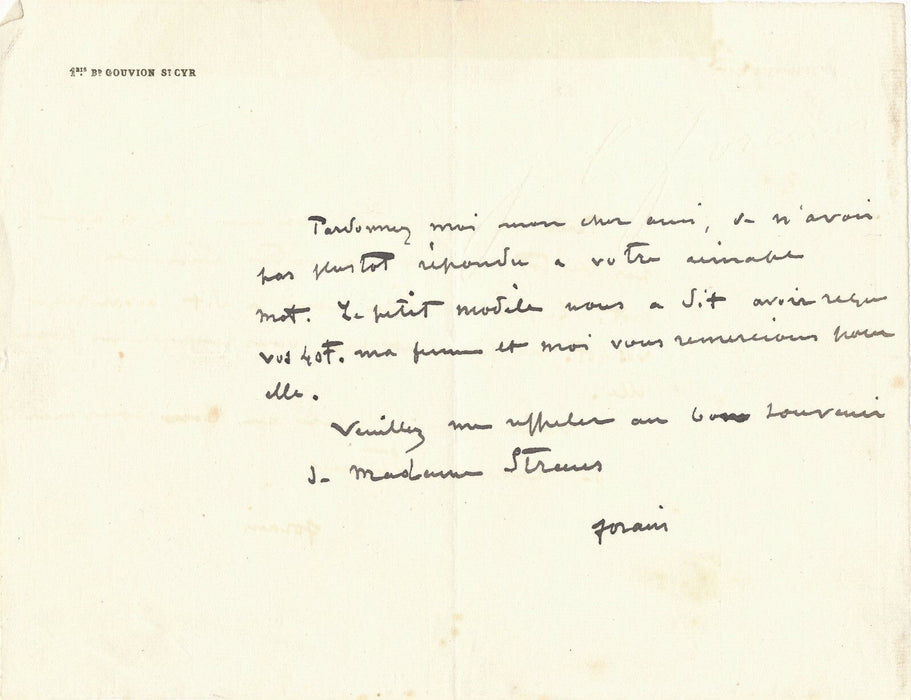 1bis Bd GOUVION St CYR
Pardonnez moi mon cher ami, de n'avoir
pas plustot répondu a votre aimable
mot. Le petit modèle nous a dit avoir reçu
vos 40F. ma femme et moi vous remercions pour
elle.
Veuillez me rappeler au bon souvenir
de Madame Straus
forain